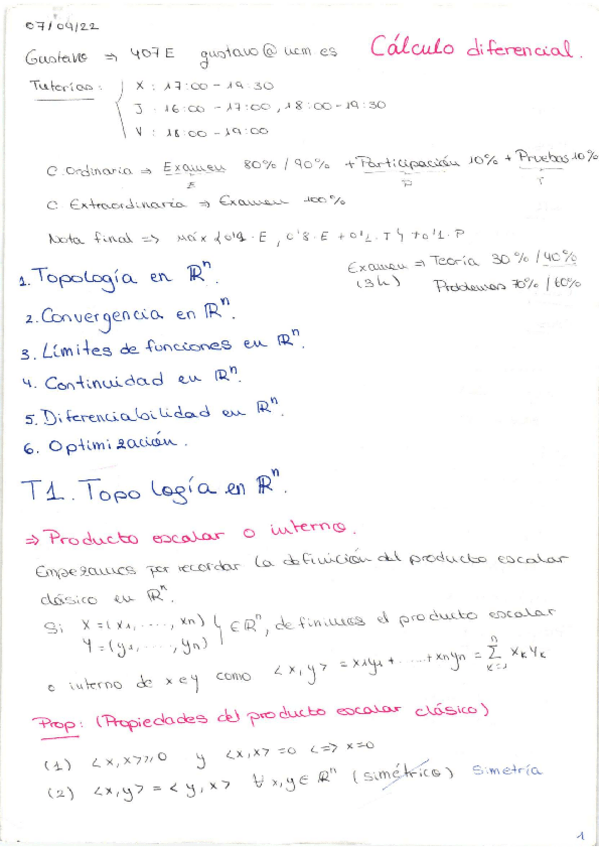 07/04/22
Gustavo ⇒ 407E gustavo@ucm.es Cálculo diferencial.
Tutorías: X: 17:00 - 19:30
J: 16:00 - 17:00, 18:00 - 19:30
V: 18:00 - 19:00
C. Ordinaria ⇒ Examen 80% / 90% + Participación 10% + Pruebas 10%
E P T
C. Extraordinaria ⇒ Examen 100%
Nota final => máx {0'9·E, 0'8·E + 0'1·T} + 0'1·P
Examen ⇒ Teoría 30% / 40%
(3h) Problemas 70% / 60%
1. Topología en ℝⁿ.
2. Convergencia en ℝⁿ.
3. Límites de funciones en ℝⁿ.
4. Continuidad en ℝⁿ.
5. Diferenciabilidad en ℝⁿ.
6. Optimización.
T1. Topología en ℝⁿ.
⇒ Producto escalar o interno.
Empezamos por recordar la definición del producto escalar
clásico en ℝⁿ.
Si X = (x₁, ....., xₙ)
Y = (y₁, ....., yₙ) } ∈ ℝⁿ, definimos el producto escalar
o interno de x e y como <x, y> = x₁y₁ + ..... + xₙyₙ = Σₖ₌₁ⁿ xₖyₖ
Prop: (Propiedades del producto escalar clásico)
(1) <x, x> ≥ 0 y <x, x> = 0 <=> x = 0
(2) <x, y> = <y, x> ∀ x, y ∈ ℝⁿ (simétrico) Simetría
1